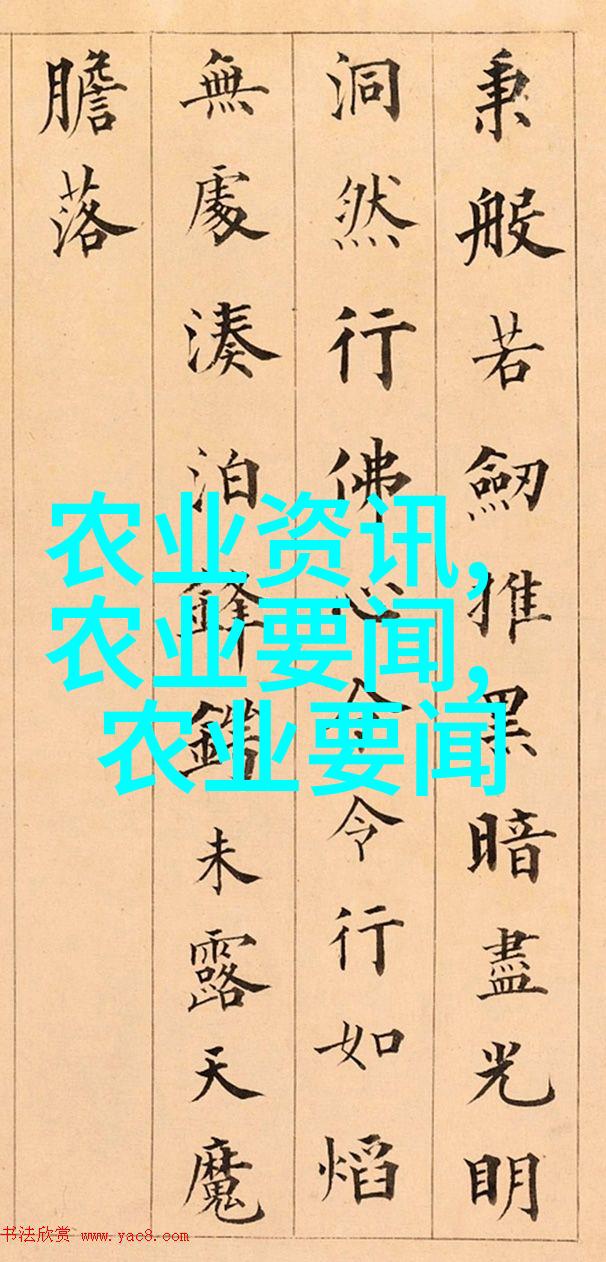 秉般若劒推黑暗盡光明
洞然行佛心令令行如熖
無處湊泊鋒鍔未露天魔
膽落
农业资讯,
农业要闻,
农业要闻
书法欣赏 www.yac8.com